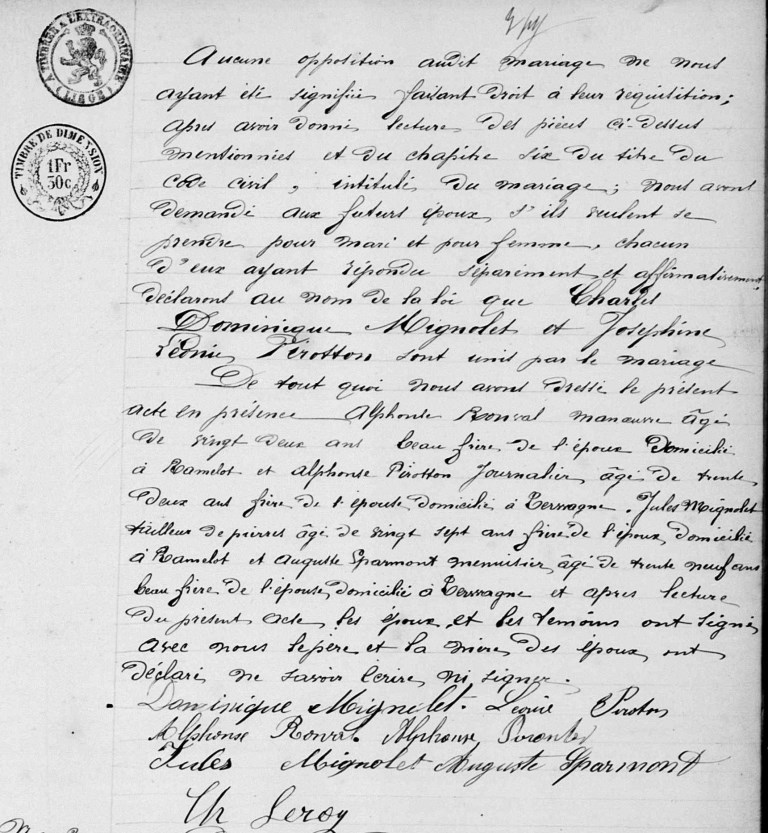 A TIMBRER A L'EXTRAORDINAIRE
(LIEGE)
TIMBRE DE DIMENSION
1Fr
50c
Aucune opposition audit mariage ne nous
ayant été signifiée faisant droit à leur réquisition;
après avoir donné lecture des pièces ci-dessus
mentionnées et du chapitre six du titre du
code civil, intitulé du mariage; nous avons
demandé aux futurs époux s'ils veulent se
prendre pour mari et pour femme, chacun
d'eux ayant répondu séparément et affirmativement,
déclarons au nom de la loi que Charles
Dominique Mignolet et Joséphine
Léonie Pirotton sont unis par le mariage
De tout quoi nous avons dressé le présent
acte en présence Alphonse Ronval manœuvre âgé
de vingt deux ans beau frère de l'époux Domicilié
à Ramelot et Alphonse Pirotton Journalier, âgé de trente
deux ans frère de l'épouse domicilié à Terwagne. Jules Mignolet
tailleur de pierres âgé de vingt sept ans frère de l'époux domicilié
à Ramelot et Auguste Sparmont menuisier, âgé de trente neuf ans
beau frère de l'épouse, domicilié à Terwagne et après lecture
du présent acte, les époux et les témoins ont signé
avec nous le père et la mère des époux ont
déclaré ne savoir écrire ni signer.
Dominique Mignolet. Léonie Piroton
Alphonse Ronval Alphonse
Jules Mignolet Auguste Sparmont
Ch Leroy